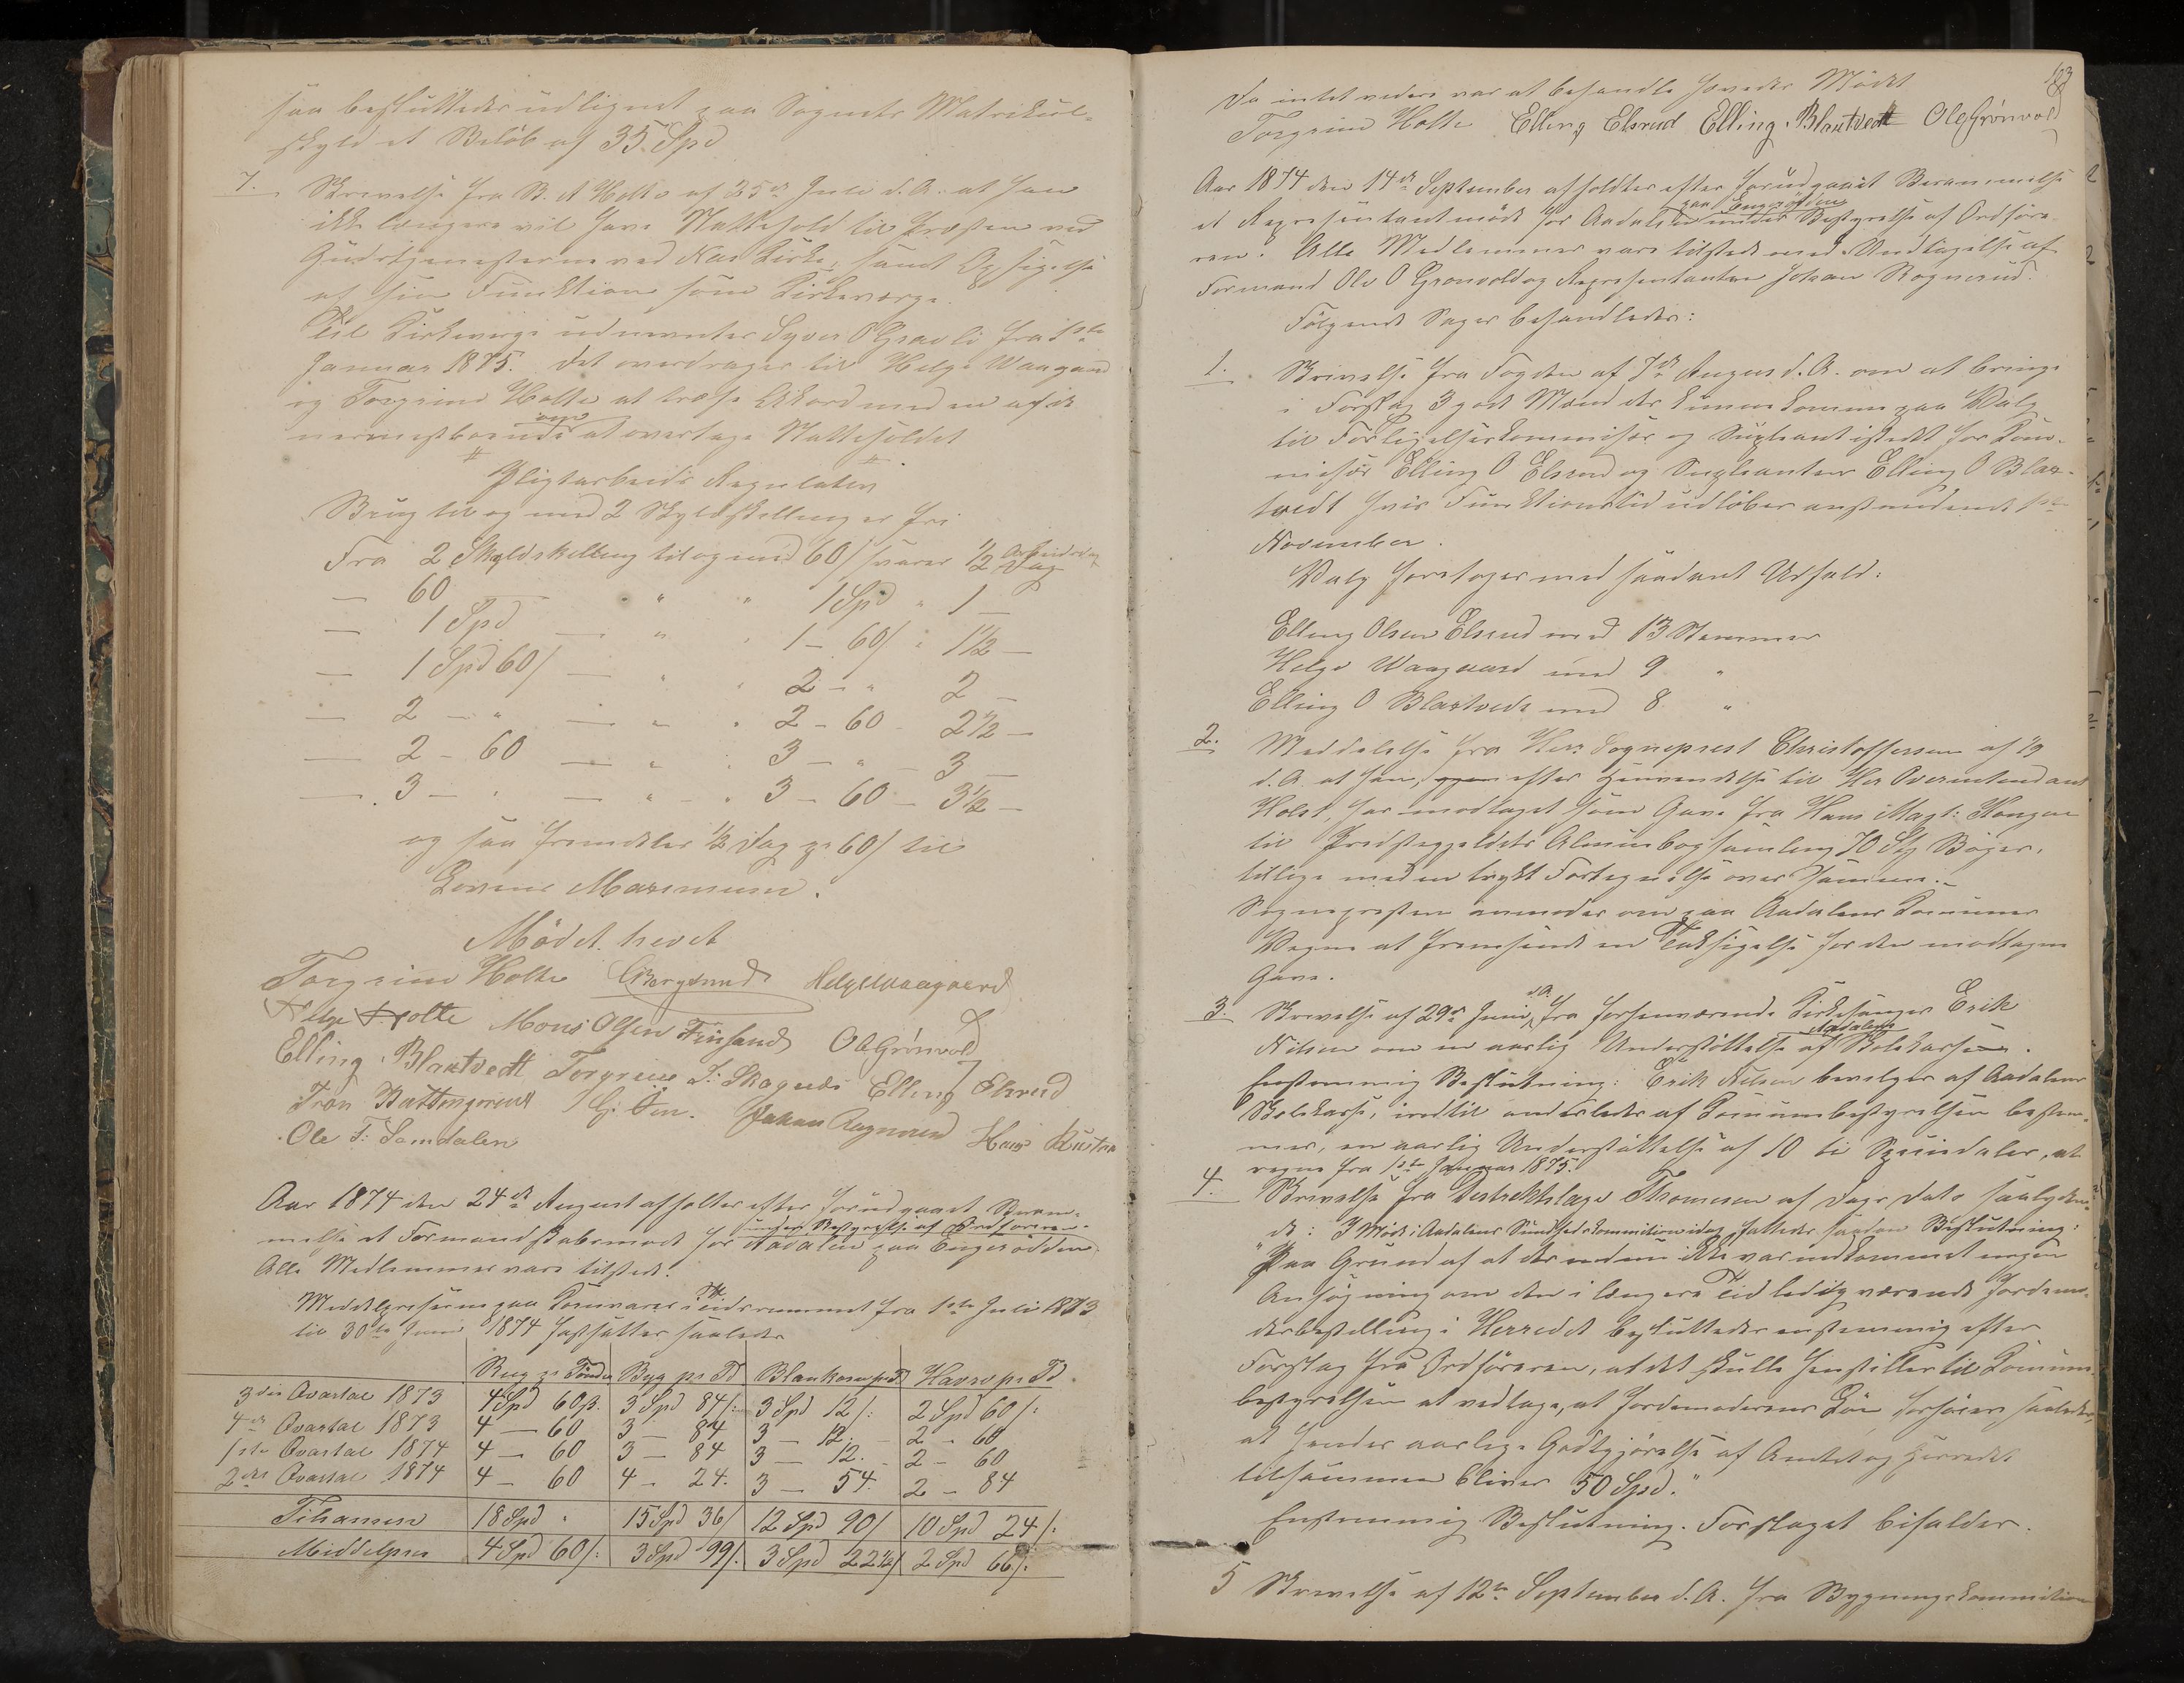 saa besluttedes udlignet paa Sognets Matrikul-
skyld et Beløb af 35. Spd
7. Skrivelse fra B. A Holte af 25de Juli d. A. at han
ikke længere vil have Nattehold til Præsten ved
Gudstjenesterne ved Næs Kirke, samt Opsigelse
af sin Funktion som Kirkeværge.
Til Kirkeverge udnævntes Syver O Gravli fra 1ste
Januar 1875. Det overdrages til Helge Waagaard
og Torgrim Holte at træffe Akord med en af de
nærmestboende om at overtage Natteholdet
Pligtarbeids Regulativ
Brug til og med 2 Skyldskilling er fri
Fra 2 Skyldskilling til og med 60/ svarer 1/2 Arbeidsdag Dag
— 60 — " " 1 Spd " 1 —
— 1 Spd — " " 1 - 60/ " 1 1/2 —
— 1 Spd 60/ — " " 2 - " 2 —
— 2 - " — " " 2 - 60 - 2 1/2 —
— 2 - 60 — " " 3 - " - 3 —
— 3 - " — " " 3 - 60 - 3 1/2 —
og saa fremdeles 1/2 Dag pr 60/ til
Lovens Maximum.
Mødet hevet
Torgrim Holte Helge Waagaard
Helge Holte Mons Olsen Finsand Ol Grönvold
Elling Blaxtvedt Torgrim T. Skagnæs Elling Elsrud
Johan Ragnerud Hans
Ole T: Somdalen
Aar 1874 den 24de August afholtes efter forudgaaet Beram-
under Bestyrelse af Ordføreren
melse et Formandskabsmøde for Aadalen paa Engerodden
Alle Medlemmer vare tilstede.
Middelpriserne paa Kornvarer i Tidsrummet fra 1ste Juli 1873
til 30te Juni 1874 fastsattes saaledes
Rug pr Tønde Byg pr Td Blankorn pr Td Havre pr Td
3die Qvartal 1873 4 Spd 60 ß. 3 Spd 84/: 3 Spd 12/: 2 Spd 60/:
4de Qvartal 1873 4 — 60 3 — 84 3 — 12. 2 — 60
1ste Qvartal 1874 4 — 60 3 — 84 3 — 12. 2 — 60
2det Qvartal 1874 4 — 60 4 — 24. 3 — 54. 2 — 84
Tilsammen 18 Spd " 15 Spd 36/ 12 Spd 90/ 10 Spd 24/:
Middelpris 4 Spd 60/: 3 Spd 99/. 3 Spd 22 1/2/ 2 Spd 66/:
183
Da intet videre var at behandle hævedes Mødet
Torgrim Holte Elling Elsrud Elling Blaxtvedt Ole Grönvold
Aar 1874 den 14de September afholdtes efter forudgaaet Berammelse
paa Engerodden
et Representantmøde for Aadalen under Bestyrelse af Ordføre-
ren. Alle Medlemmer vare tilstede med Undtagelse af
Formand Ole O Grønvold og Representanten Johan Ragnerud.
Følgende Sager behandledes:
1. Skrivelse fra Fogden af 7de August d. A. om at bringe
i Forslag 3 gode Mænd der kunne komme paa Valg
til Forligelseskommisær og Supleant istedet for Kom-
misær Elling O Elsrud og Supleanten Elling O Blax-
tvedt hvis Funktionstid udløber anstundende 1ste
November.
Valg foretages med saadant Udfald:
Elling Olsen Elsrud med 13 Stemmer
Helge Waagaard med 9 "
Elling O Blaxtvedt med 8 "
2. Meddelelse fra Herr Sogneprest Christoffersen af
d. A. at han, efter Henvendelse til Her Overintendant
Holst, har modtaget som Gave fra Hans Majt: Kongen
til Prestegjeldets Almuebogsamling 70 Stk Bøger,
tillige med en trykt Fortegnelse over samme.
Sognepresten anmodes om paa Aadalens Kommunes
Vegne at fremsende en Taksigelse for den modtagne
Gave.
3. Skrivelse af 29de Juni d. A. fra forhenværende Kirkesanger Erik
Nilsen om en aarlig Understøttelse af Aadalens Skolekasse.
Enstemmig Beslutning: Erik Nilsen bevilges af Aadalens
Skolekasse, indtil anderledes af Kommunebestyrelsen bestem-
mes, en aarlig Understøttelse af 10 ti Speciedaler, at
regne fra 1ste Januar 1875.
4. Skrivelse fra Destriktslæge Thomesen af Dags Dato saalyden-
de: "I Møde i Aadalens Sundhedskommission idag fattedes saadan Beslutning:
Paa Grund af at der endnu ikke var indkommet nogen
Ansøgning om den i længere Tid ledig værende Jordemo-
derbestilling i Herredet besluttedes enstemmig efter
Forslag fra Ordføreren, at det skulle henstilles til Kommune-
bestyrelsen at vedtage, at Jordemoderens Løn forhøies saaledes,
at hendes aarlige Godtgjørelse af Amtet og Herredet
tilsammen bliver 50 Spd."
Enstemmig Beslutning. Forslaget bifaldes.
5 Skrivelse af 12te September d. A. fra Bygningskommission